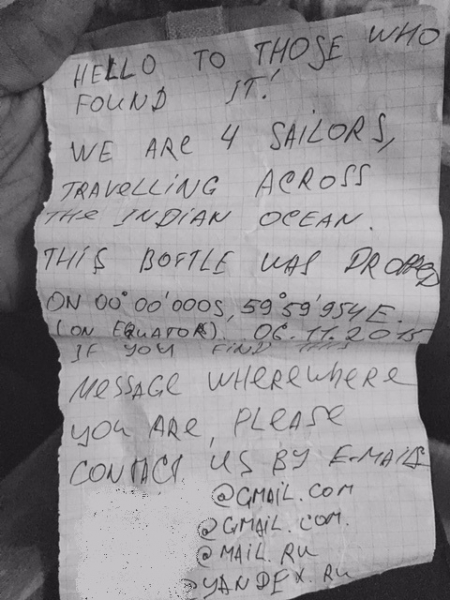 HELLO TO THOSE WHO
FOUND IT!
WE ARE 4 SAILORS,
TRAVELLING ACROSS
THE INDIAN OCEAN.
THIS BOTTLE WAS DROPPED
ON 00°00'000S, 59°59'954E.
(ON EQUATOR). 06.11.2015
IF YOU FIND THIS
MESSAGE WHEREWHERE
YOU ARE, PLEASE
CONTACT US BY E-MAILS
@GMAIL.COM
@GMAIL.COM.
@MAIL.RU
@YANDEX.RU